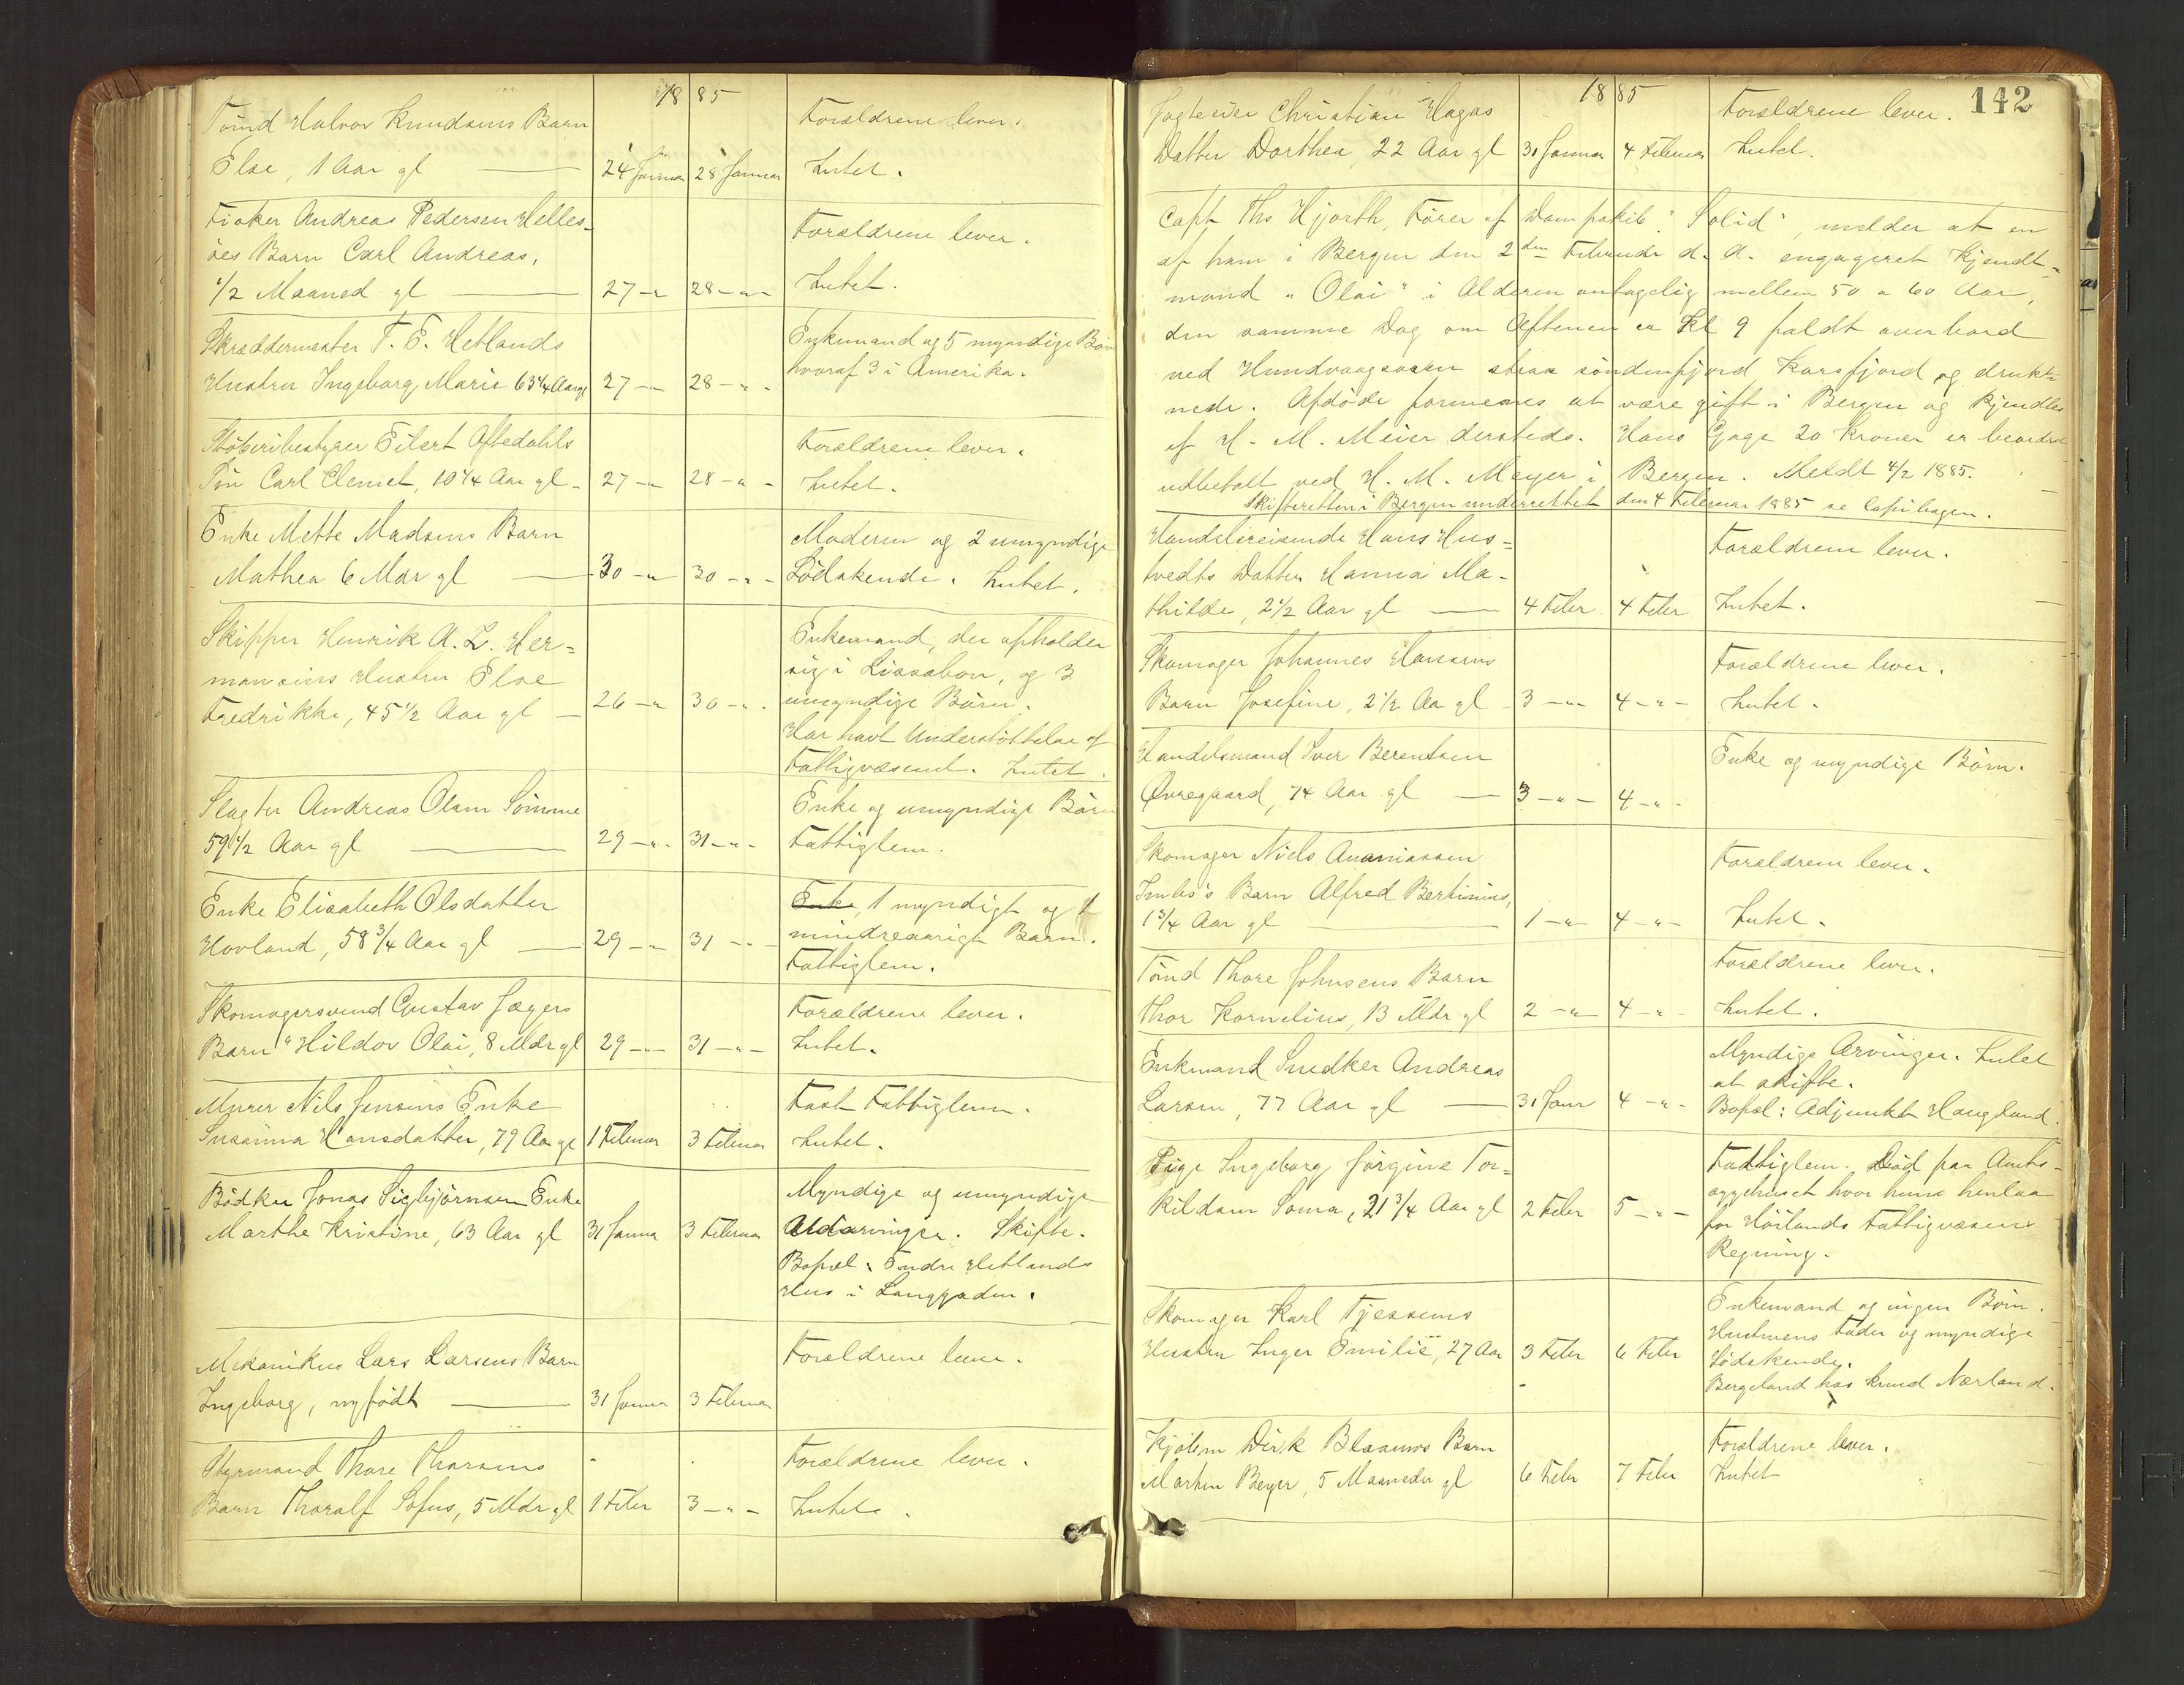 1885
Tømd Halvor Knudsens Barn
Forældrene lever.
Else, 1 Aar gl — 24 Januar 28 Januar Intet.
Fisker Andreas Pedersen Helles-
Forældrene lever.
öes Barn Carl Andreas,
1/2 Maaned gl — 27 — " 28 — " — Intet.
Skræddermester T. E. Hetlands
Enkemand og 5 myndige Børn
Hustru Ingeborg Marie 63 1/4 Aar gl 27 — " 28 — " — hvoraf 3 i Amerika.
Støberibestyrer Eilert Aftedahls
Forældrene lever.
Søn Carl Clemet, 10 1/4 Aar gl - 27 — " 28 — " — Intet.
Enke Mette Madsens Barn
Moderen og 2 umyndige
Mathea 6 Mdr gl — 30 — " 30 — " — Sødskende. Intet.
Skipper Henrik A. L. Her=
Enkemand, der opholder
mansens Hustru Else
sig i Lissabon, og 3
Fredrikke, 45 1/2 Aar gl — 26 — " 30 — " . umyndige Børn.
Har havt Understøttelse af
Fattigvæsenet. Intet.
Slagter Andreas Olsen Sömme
Enke og umyndige Børn
59 1/2 Aar gl — 29 — " . 31 — " — Fattiglem.
Enke Elisabeth Olsdatter
Enke, 1 myndigt og 1
Hovland, 58 3/4 Aar gl — 29 — " 31 — " — mindreaarigt Barn.
Fattiglem.
Skomagersvend Gustav Jægers
Forældrene lever.
Barn Hildor Olai, 8 Mdr gl 29 — " 31 — " — Intet.
Murer Nils Jensens Enke
Fast Fattiglem.
Susanna Hansdatter, 79 Aar gl 1 Februar 3 Februar Intet.
Bödker Jonas Sigbjörnsen Enke
Myndige og umyndige
Marthe Kristine, 63 Aar gl 31 Januar 3 Februar Udarvinger. Skifte.
Bopæl: Endre Hetlands
Hus i Langgaden.
Mekanikus Lars Larsens Barn
Forældrene lever.
Ingeborg, nyfødt — 31 Januar 3 Februar
Styrmand Thore Thorsens
Forældrene lever.
Barn Thoralf Sofus, 5 Mdr gl 1 Febr 3 — " — Intet.
142
1885
Jagteier Christian Hagas
Forældrene lever.
Datter Dorthea, 22 Aar gl 31 Januar 4 Februar Intet.
Capt Ths Hjorth, Fører af Dampskib "Solid", melder at en
af ham i Bergen den 2den Februar d. A. engageret Kjendt=
mand "Olai" i Alderen antagelig mellem 50 a 60 Aar,
den samme Dag om Aftenen ca Kl 9 faldt overbord
ved Hundvaagosen strax söndenfjord Korsfjord og drukt=
nede. Afdöde formenes at være gift i Bergen og kjendtes
af H. M. Meier dersteds. Hans Gage 20 Kroner er beordret
udbetalt ved H. M. Meyer i Bergen. Meldt 4/2 1885.
Skifteretten i Bergen underrettet den 4 Februar 1885 se Copibogen.
Handelsreisende Hans Hus=
Forældrene lever.
tvedts Datter Hanna Ma-
thilde, 2 1/2 Aar gl — 4 Febr. 4 Febr Intet.
Skomager Johannes Hansens
Forældrene lever.
Barn Josefine, 2 1/2 Aar gl 3 — " 4 — " — Intet.
Handelsmand Iver Berentsen
Enke og myndige Börn.
Øvregaard, 74 Aar gl — 3 — " — 4 — " —
Skomager Niels Ananiassen
Forældrene lever.
Barn Alfred Bertinius,
1 3/4 Aar gl — 1 — " 4 — " — Intet.
Tømd Thore Johnsens Barn
Forældrene lever.
Thor Kornelius, 13 Mdr gl 2 — " 4 — " — Intet.
Enkemand Snedker Andreas
Myndige Arvinger. Intet
at skifte.
Larsen, 77 Aar gl — 31 Janr 4 — " — Bopæl: Adjunkt Haugland.
Pige Ingeborg Jørgine Tor=
Fattiglem. Död paa Amts-
kildsen Soma, 21 3/4 Aar gl 2 Febr 5 — " — sygehuset hvor hun henlaa
for Höilands Fattigvæsens
Regning.
Skomager Karl Tjessems
Enkemand og ingen Börn.
Hustru Inger Emilie, 27 Aar 3 Febr 6 Febr Hustruens Fader og myndige
Södskende.
Bergeland hos Knud Nærland.
Kjøbm Dirk Blaauws Barn
Forældrene lever.
Morten Beyer, 5 Maaneder gl 6 Febr 7 Febr Intet